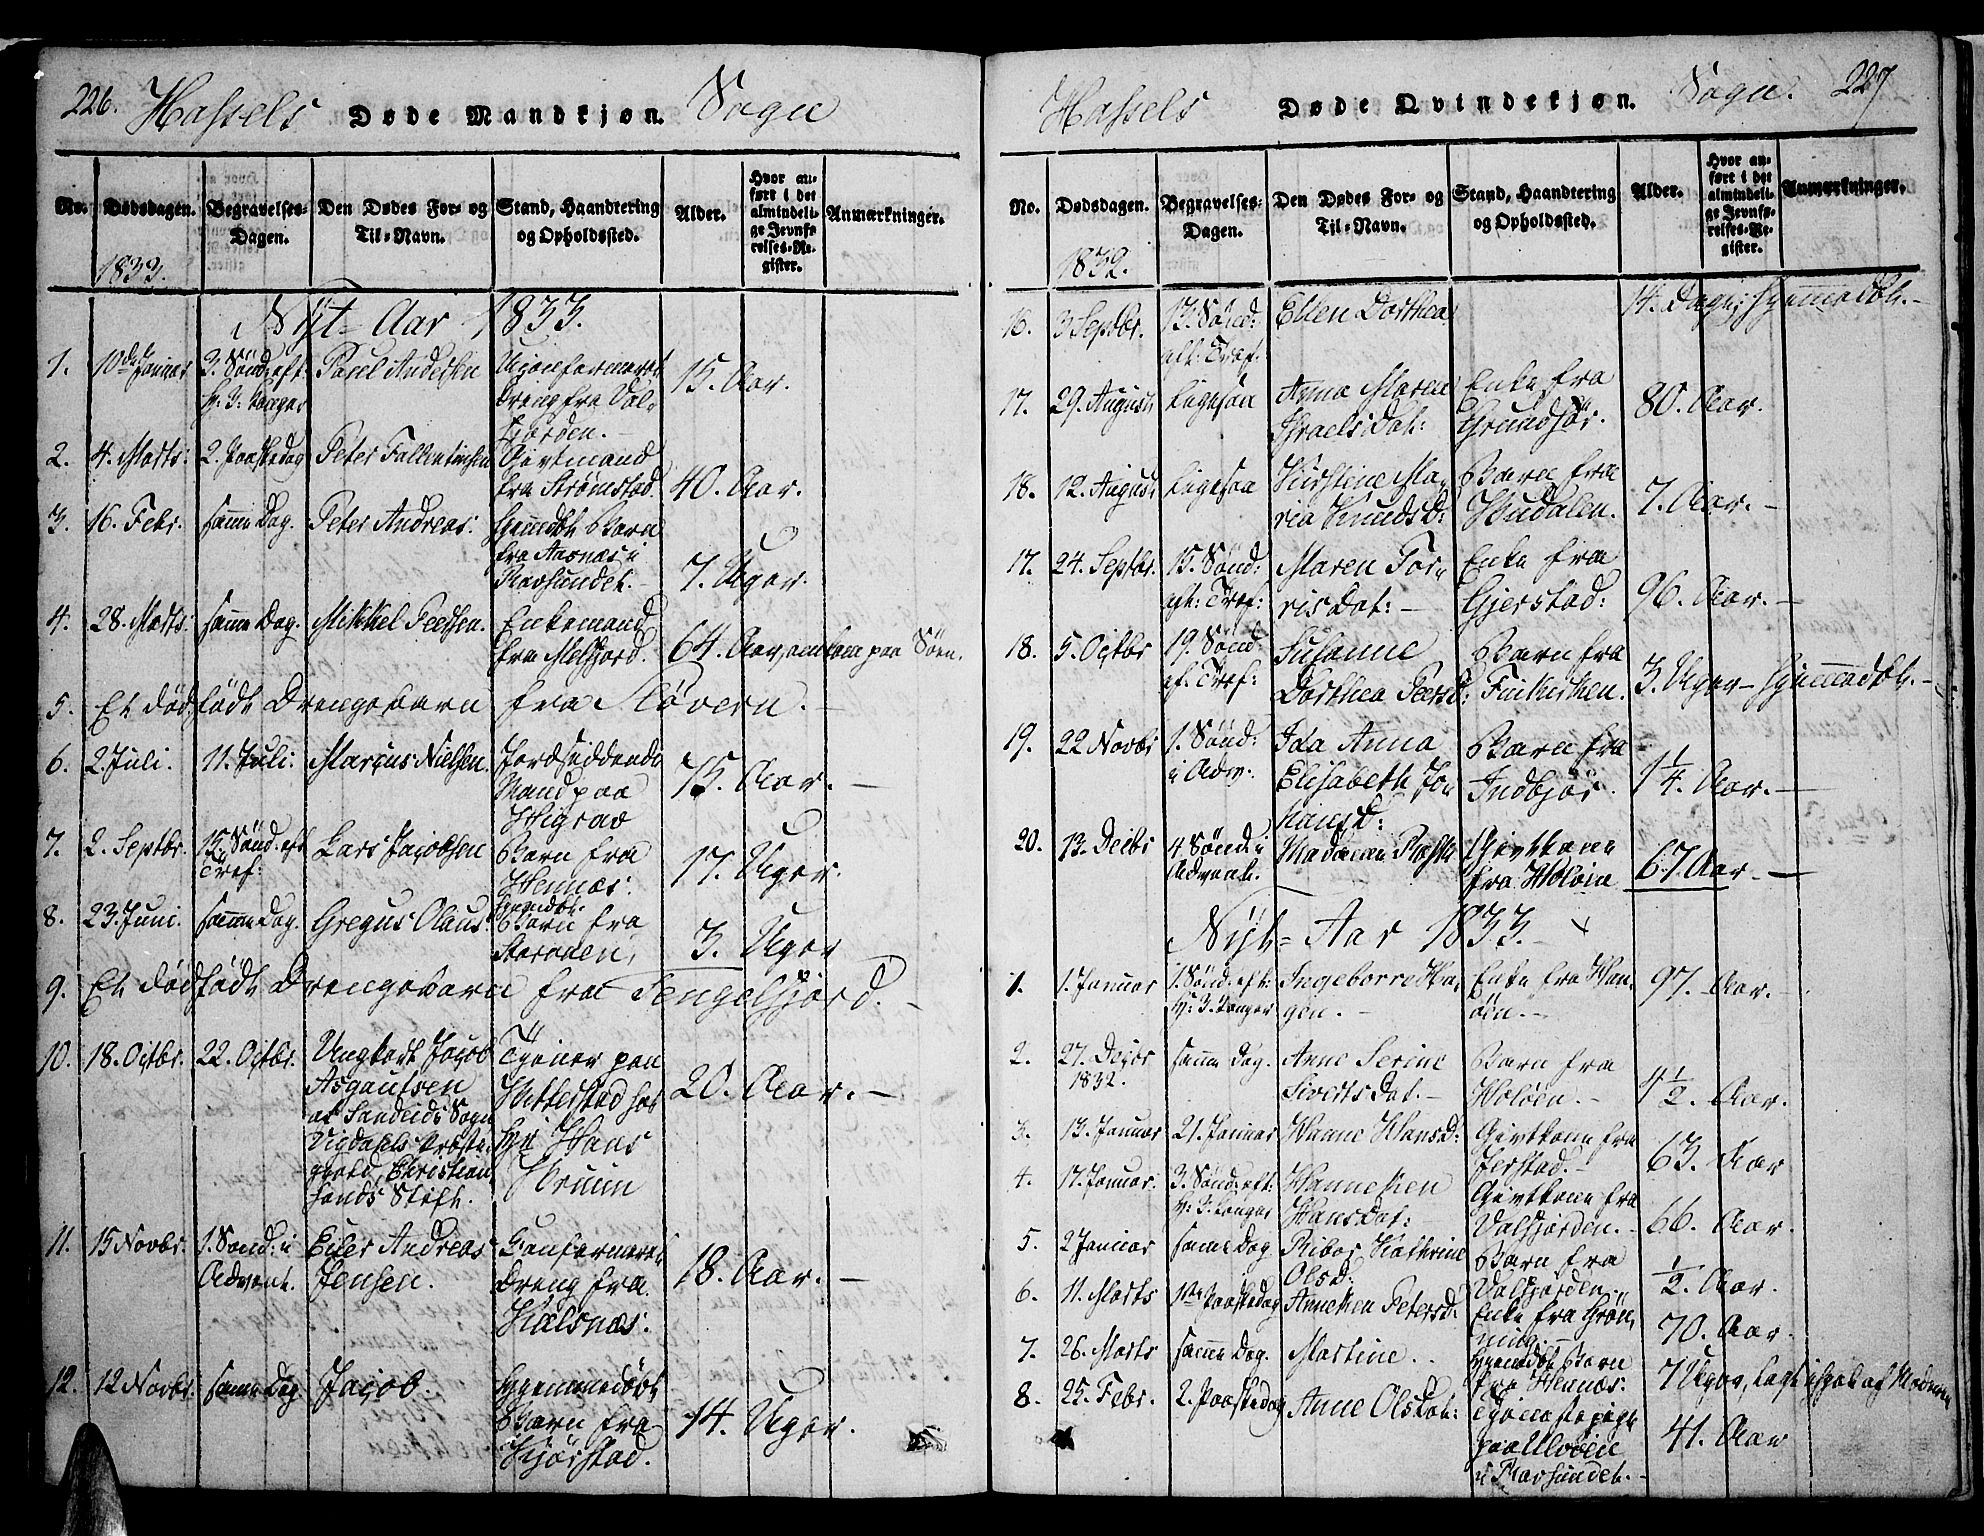 226. Hassels Døde Mandkjøn. Sogn
No. Dødsdagen. Begravelses-Dagen. Den Dødes For- og Til-Navn. Stand, Haandtering og Opholdssted. Alder. Hvor anført i det almindelige Jevnførelses-Register. Anmærkninger.
1833.
Nyt-Aar 1833.
1. 10de Januar 3. Sönd. eft. H. 3. Konger Poul Andersen Uconfirmeret Dreng fra Valfjorden. 15. Aar.
2. 4. Marts: 2. Paaskedag Peter Falkentinsen Givtmand fra Strømstad. 40. Aar.
3. 16. Febr. samme Dag. Peter Andreas: Hjemdöbt Barn fra Aarnæs i Ravsundet. 7. Uger.
4. 28. Marts: samme Dag. Mikkel Peersen. Enkemand fra Melfjord. 64. Aar, omkom paa Söen.
5. Et dödfödt Drengebarn fra Skövern.
6. 2 Juli. 11. Juli: Marcus Nielsen. Jordsiddende Mand paa Higrav 75. Aar.
7. 2. Septbr. 15. Sönd. eft Tref: Lars Jacobsen Barn fra Hennæs. 17. Uger.
8. 23. Juni. samme Dag. Gregus Olaus: Hjemdöbt Barn fra Storoden, 3. Uger
9. Et dödfödt Drengebarn fra Fengelfjord.
10. 18. Octbr. 22. Octbr. Ungkarl Jacob Asgautsen af Sandeids Sogn Vigdahls Præstegjeld, Christiansands Stift. Tjener paa Vitterstad hos Hr. Hans 20. Aar.
11. 15 Novbr. 1. Sønd: i Advent. Eiler Andreas Jensen. Confirmeret Dreng fra Kalsnæs. 18. Aar.
12. 12 Novbr. samme Dag Jacob. Hjemmedöbt Barn fra Kjörstad. 14. Uger.
Hassels Døde Qvindekjøn. Sogn. 227
No. Dødsdagen. Begravelses-Dagen. Den Dødes For- og Til-Navn. Stand, Haandtering og Opholdssted. Alder. Hvor anført i det almindelige Jevnførelses-Register. Anmærkninger.
1832.
16. 3 Septbr. 13. Sönd: aft: Tref: Ellen Dorthea 14. Dage; Hjemmedbt.
17. 29. August Ligesaa Anna Maren Israels Dat: Enke fra Grundför. 80. Aar.
18. 12. August Ligesaa Kirstine Maria Knudsd: Barn fra Huddalen. 7. Aar.
17. 24. Septbr. 15. Sönd: aft: Tref: Maren Torrisdat: Enke fra Gjerstad: 96. Aar.
18. 5. Octbr 19. Sönd: ef. Tref: Susanne Dorthea Peersd: Barn fra Finkirken. 3. Uger Hjemmedbt.
19. 22 Novbr 1. Sönd: i Adv: Ida Anna Elisabeth Johansd: Barn fra Indbjör. 1 1/4. Aar.
20. 13. Decbr 4 Sönd i Advent. Madame Rask Givtkone fra Holöen 67 Aar
Nyt-Aar 1833.
1. 1. Januar 1. Sönd. eft: H: 3. Konger Ingeborre Hagen. Enke fra Hanöen. 97. Aar.
2. 27. Decbr 1832. samme Dag. Anne Serine Sivertsdat. Barn fra Holöen. 4 1/2. Aar.
3. 13. Januar 21. Januar Hanne Hansd: Givtkone fra Jerstad. 63. Aar
4. 17. Januar. 3. Sönd. eft: H: 3. Konger Hanneken Hansdat: Givtkone fra Valfjorden. 66. Aar.
5. 2 Januar samme Dag Ribor Kathrine Olsd: Barn fra Valfjorden. 1/2. Aar.
6. 11. Marts 1ste Paaskedag Anneken Petersd: Enke fra Gröning. 70. Aar.
7. 26. Marts samme Dag. Martine.. Hjemdöbt Barn fra Hennæs: 7 Uger, lagt ihjel af Moderen
8. 25. Febr. 2. Paaskedag Anne Olsdat: Tjenestepige paa Ulvöen i Ravsundet. 41. Aar